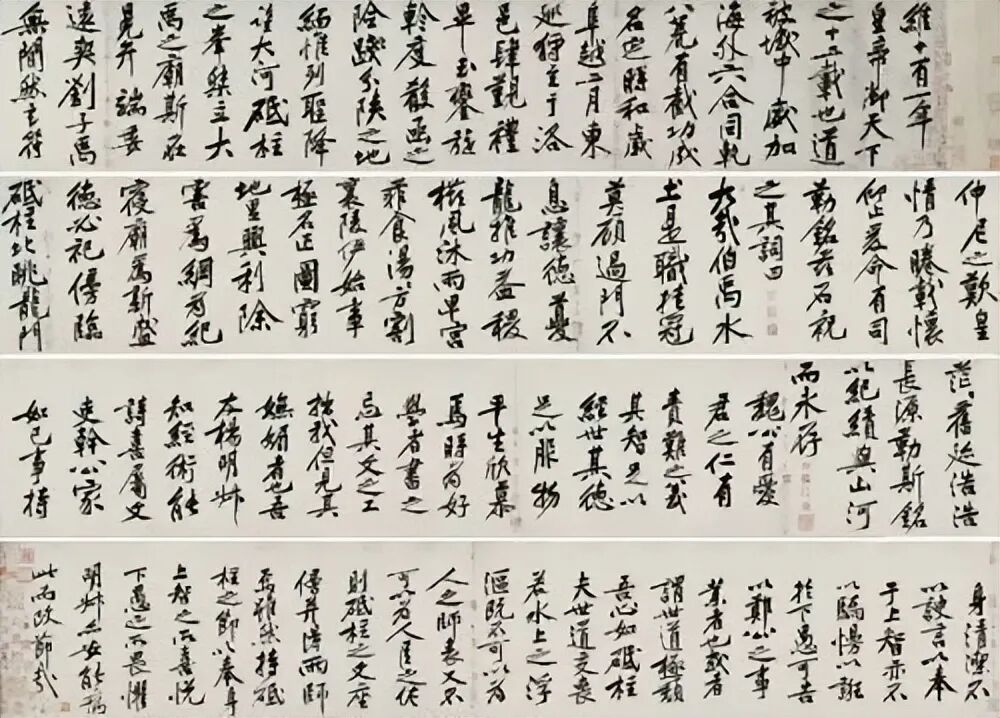 維十有一年
皇帝御天下
之十二載也道
被域中威加
海外六合同軌
八荒有截功成
名遂時和歲
阜越二月東
巡狩至于洛
邑肆覲禮
畢玉鑾旋
軫度殽函之
險踐分陝之地
緬惟列聖降
望大河砥柱
之峯桀立大
禹之廟斯在
冕弁端委
遠契劉子禹
無間然玄符
仲尼之歎皇
情乃睠載懷
仰止爰命有司
勒銘茲石祝
之其詞曰
大哉伯禹水
土是職挂冠
莫顧過門不
息讓德夔
龍推功益稷
櫛風沐雨卑宮
菲食湯湯方割
襄陵伊始事
極名正圖窮
地里興利除
害為綱為紀
寢廟為斯盛
德必祀傍臨
砥柱北眺龍門
茫茫舊迹浩浩
長源勒斯銘
以紀績與山河
而永存
魏公有愛
君之仁有
責難之義
其智足以
經世其德
足以服物
平生欣慕
焉時為好
學者書之
忘其文之工
拙我但見其
嫵媚者也吾
友楊明叔
知經術能
詩喜屬文
吏幹公家
如己事持
身清潔不
以諛言以奉
于上智亦不
以驕慢以誑
於下愚可告
以鄭公之事
業者也或者
謂世道極頹
吾心如砥柱
夫世道交喪
若水上之浮
漚既不可以為
人之師表又不
可以為人臣之佐
則砥柱之文座
傍并得兩師
焉雖然持砥
柱之節以奉身
上智之所喜悅
下愚之所畏懼
明叔亦安能病
此而改節哉